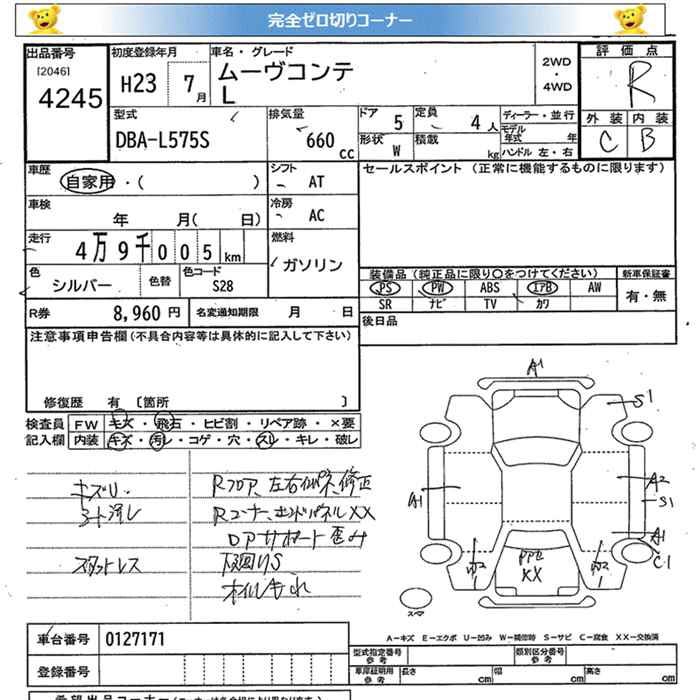 完全ゼロ切りコーナー
出品番号
[2046]
4245
初度登録年月
H23 7月
車名・グレード
ムーヴコンテ
L
2WD
・
4WD
評価点
R
外装 内装
C B
型式
DBA-L575S
排気量
660 cc
ドア 5
定員 4人
形状 W
積載 kg
ディーラー・並行
モデル年式 年
ハンドル 左・右
車歴
自家用・( )
シフト
AT
セールスポイント (正常に機能するものに限ります)
車検
年 月( 日)
冷房
AC
走行
4万9千005km
燃料
ガソリン
色
シルバー
色替
色コード
S28
装備品(純正品に限り〇をつけてください)
新車保証書
PS PW ABS エアB AW
有・無
SR ナビ TV カワ
R券 8,960円
名変通知期限 月 日
後日品
注意事項申告欄(不具合内容等は具体的に記入して下さい)
修復歴 有 [箇所 ]
検査員記入欄
FW キズ・飛石・ヒビ割・リペア跡・×要
内装 キズ・汚レ・コゲ・穴・スレ・キレ・破レ
キズU.
シート汚レ
スタットレス
Rフロア、左右インパネ、修正
Rコーナー、エンドパネルXX
ロアサポート歪み
下廻りS
オイルもれ
A1
S1
A1
A2
S1
A1
C1
W2
1
PPU
XX
W2
1
スペア
A-キズ E-エクボ U-凹み W-補修跡 S-サビ C-腐食 XX-交換済
車台番号 0127171
登録番号
型式指定番号
参考
類別区分番号
参考
車庫証明用
参考
長さ cm
幅 cm
高さ cm